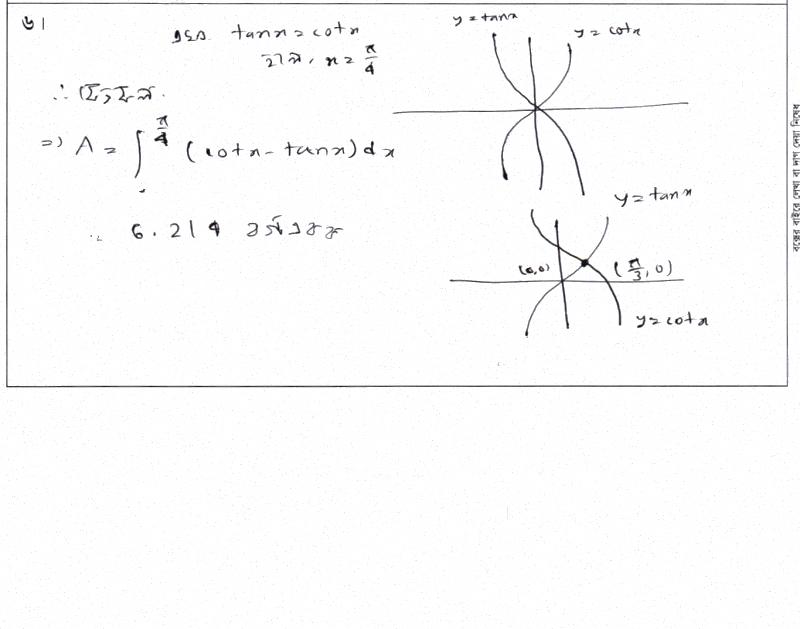 ৬।
এখন tanx = cotx
হলে, x = π/4
∴ ক্ষেত্রফল
=> A = ∫^{π/4} (cotx - tanx) dx
6.214 বর্গএকক
y = tanx
y = cotx
y = tanx
(0,0)
(π/3, 0)
y = cotx
বক্সের বাইরে লেখা বা দাগ দেয়া নিষেধ